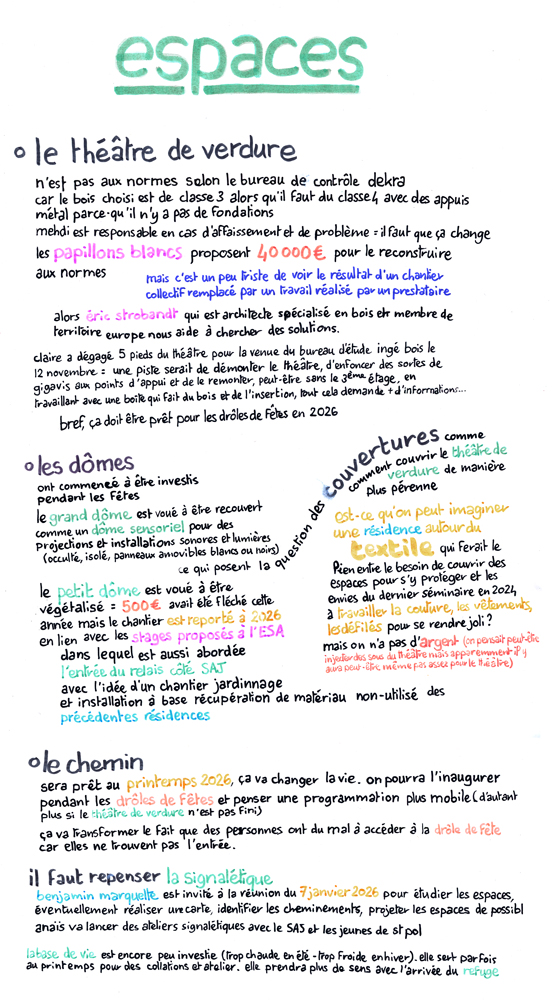 espaces
le théâtre de verdure
n'est pas aux normes selon le bureau de contrôle dekra
car le bois choisi est de classe 3 alors qu'il faut du classe 4 avec des appuis
métal parce-qu'il n'y a pas de fondations
mehdi est responsable en cas d'affaissement et de problème = il faut que ça change
les papillons blancs proposent 40 000€ pour le reconstruire
aux normes
mais c'est un peu triste de voir le résultat d'un chantier
collectif remplacé par un travail réalisé par un prestataire
alors éric strobandt qui est architecte spécialisé en bois et membre de
territoire europe nous aide à chercher des solutions.
claire a dégagé 5 pieds du théâtre pour la venue du bureau d'étude ingé bois le
12 novembre = une piste serait de démonter le théâtre, d'enfoncer des sortes de
gigavis aux points d'appui et de le remonter, peut-être sans le 3ème étage, en
travaillant avec une boite qui fait du bois et de l'insertion, tout cela demande + d'informations...
bref, ça doit être prêt pour les drôles de fêtes en 2026
les dômes
ont commencé à être investis
pendant les fêtes
le grand dôme est voué à être recouvert
comme un dôme sensoriel pour des
projections et installations sonores et lumières
(occulté, isolé, panneaux amovibles blancs ou noirs)
ce qui posent la question des couvertures comme
comment couvrir le théâtre de
verdure de manière
plus pérenne
est-ce qu'on peut imaginer
une résidence autour du
textile qui ferait le
lien entre le besoin de couvrir des
espaces pour s'y protéger et les
envies du dernier séminaire en 2024
à travailler la couture, les vêtements,
les défilés pour se rendre joli ?
mais on n'a pas d'argent (on pensait peut-être
injecter des sous du théâtre mais apparemment il y
aura peut-être, même pas assez pour le théâtre)
le petit dôme est voué à être
végétalisé = 500€ avait été fléché cette
année mais le chantier est reporté à 2026
en lien avec les stages proposés à l'ESA
dans lequel est aussi abordée
l'entrée du relais côté SAJ
avec l'idée d'un chantier jardinnage
et installation à base récupération de matériau non-utilisé des
précédentes résidences
le chemin
sera prêt au printemps 2026, ça va changer la vie. on pourra l'inaugurer
pendant les drôles de fêtes et penser une programmation plus mobile (d'autant
plus si le théâtre de verdure n'est pas fini)
ça va transformer le fait que des personnes ont du mal à accéder à la drôle de fête
car elles ne trouvent pas l'entrée.
il faut repenser la signalétique
benjamin marquette est invité à la réunion du 7 janvier 2026 pour étudier les espaces,
éventuellement réaliser une carte, identifier les cheminements, projeter les espaces de possibl
anaïs va lancer des ateliers signalétiques avec le SAS et les jeunes de st pol
la base de vie est encore peu investie (trop chaude en été - trop froide en hiver). elle sert parfois
au printemps pour des collations et atelier. elle prendra plus de sens avec l'arrivée du refuge